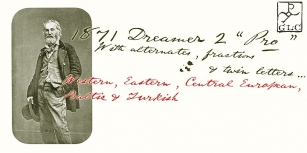 1871 Dreamer 2 "Pro"
With alternates, fractions
& twin letters...
Western, Eastern, Central European,
Baltic & Turkish
GLC